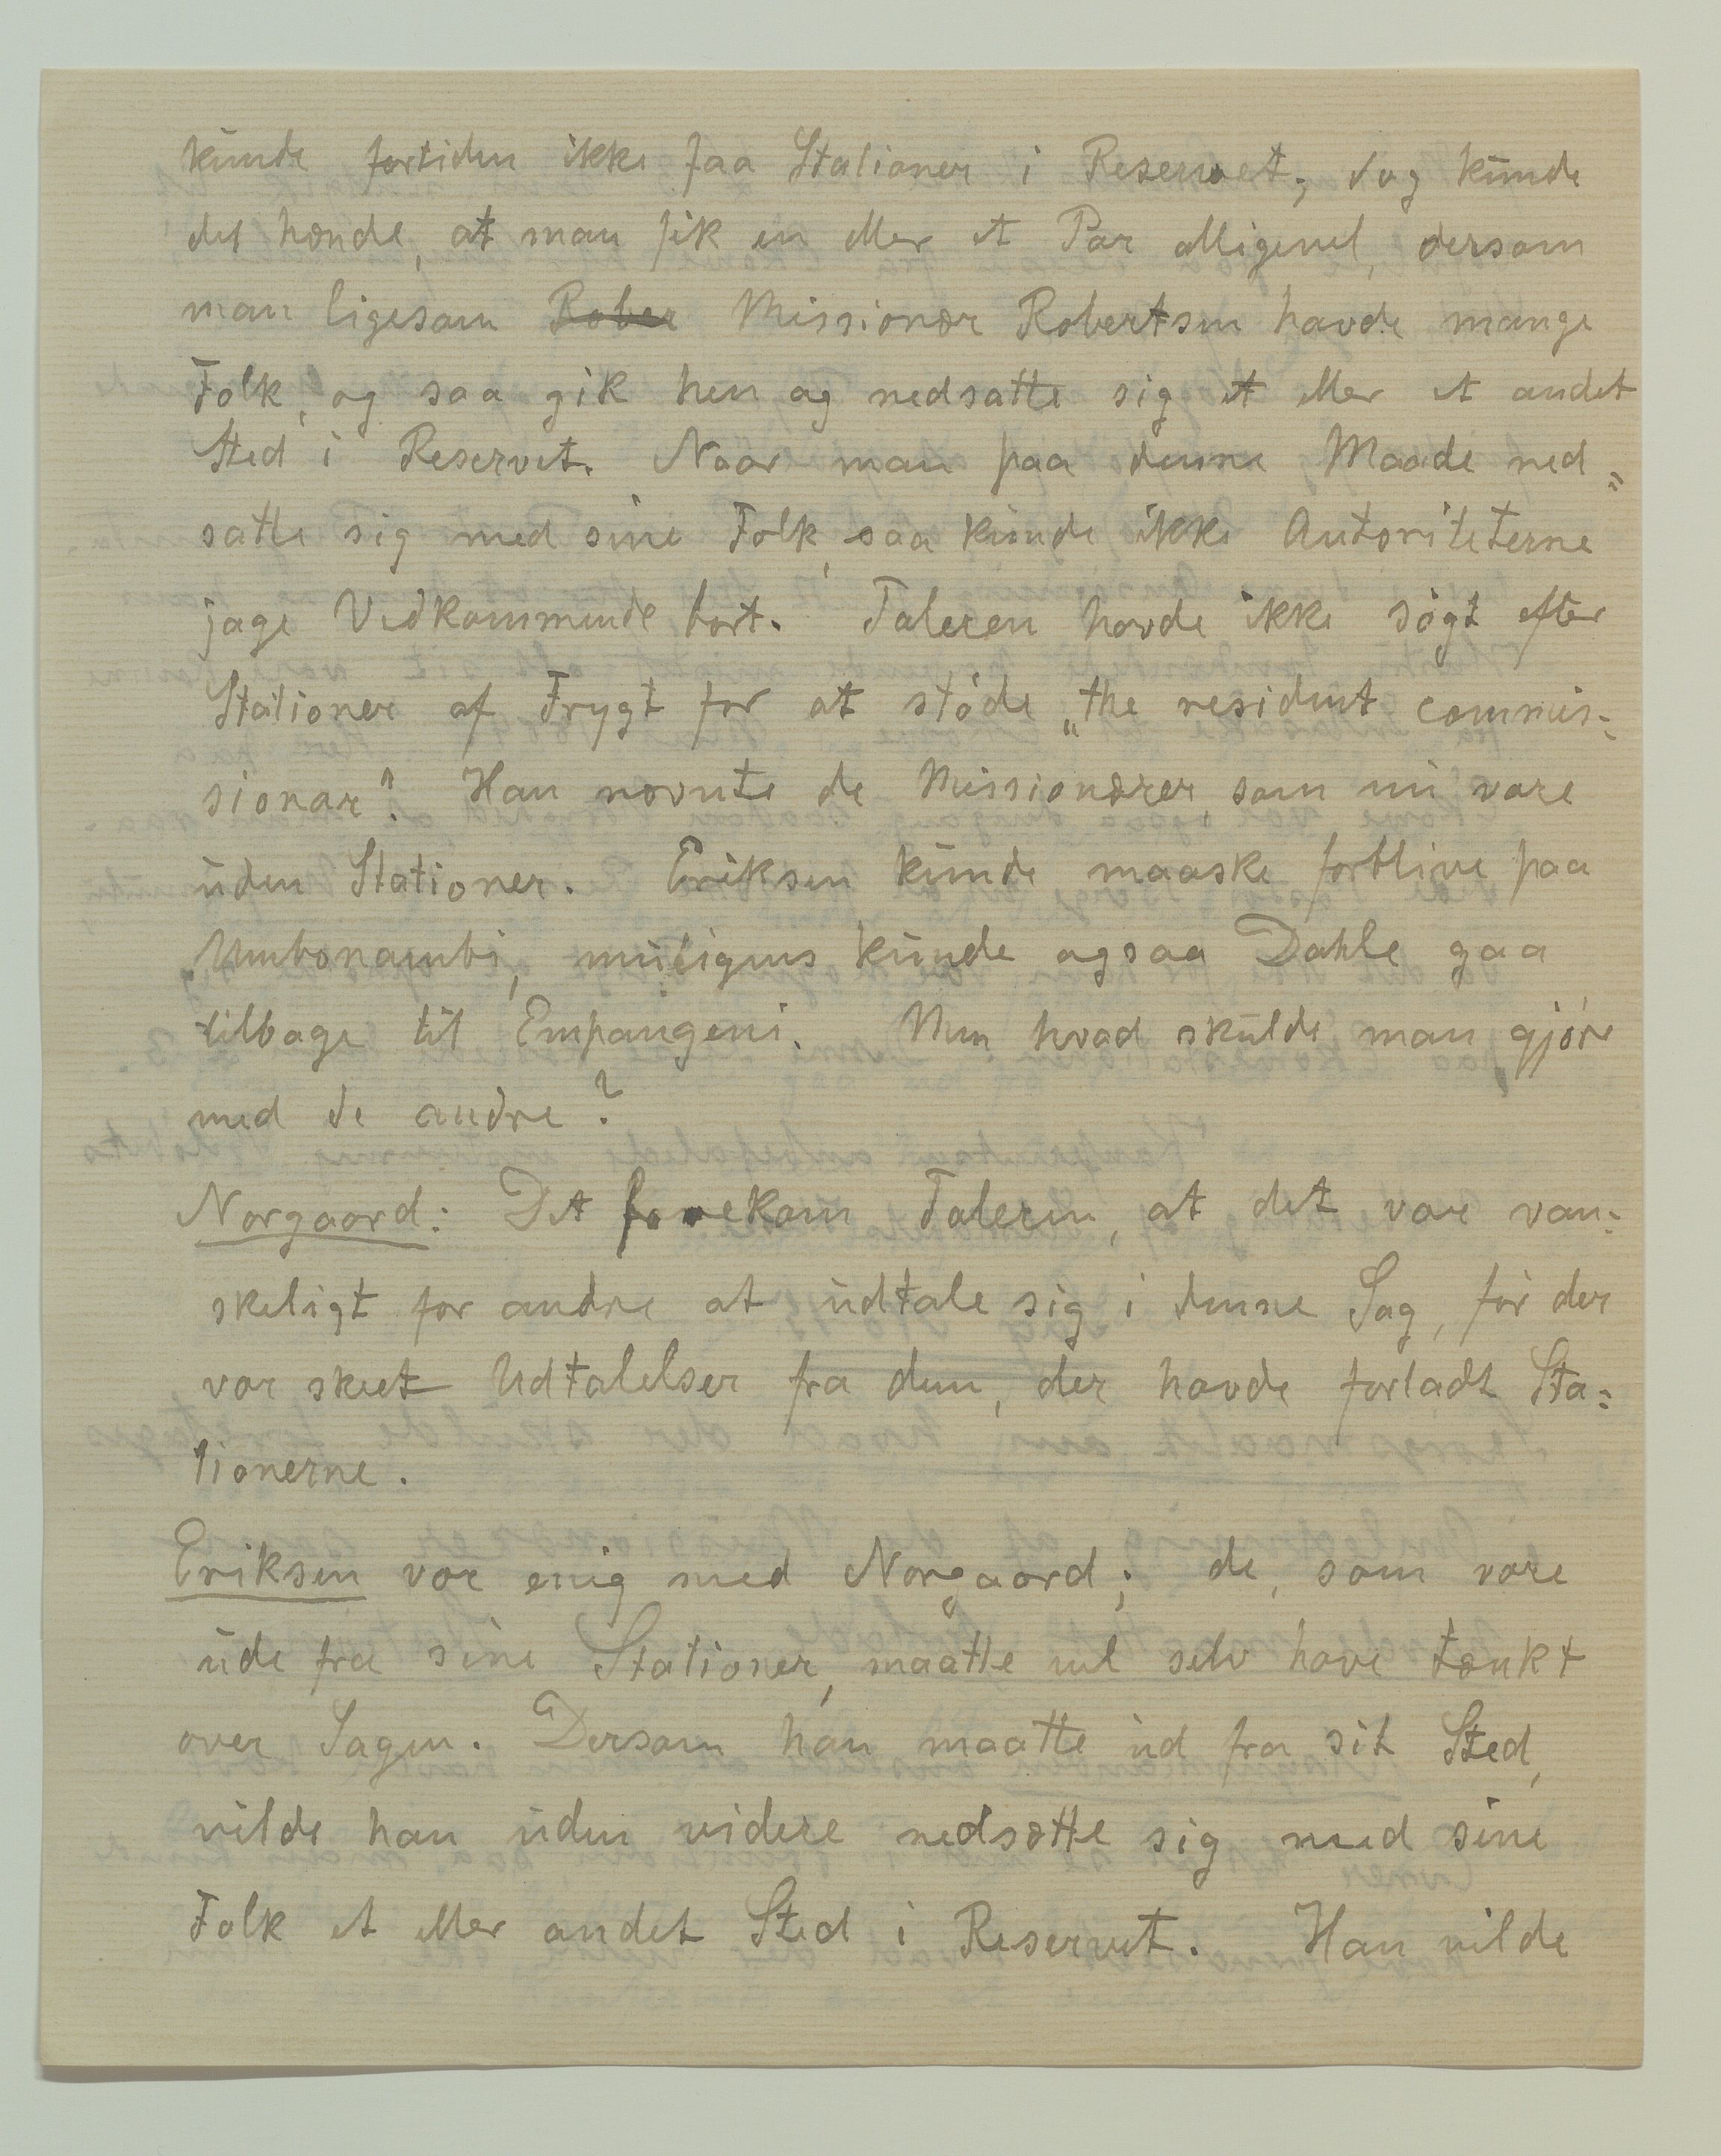 kunde fortiden ikke faa Stationer i Reservet; dog kunde
det hænde, at man fik en eller et Par alligevel, dersom
man ligesom Rober Missionær Robertson havde mange
Folk, og saa gik hen og nedsatte sig et eller et andet
Sted i Reservet. Naar man paa denne Maade ned„
satte sig med sine Folk, saa kunde ikke Autoriteterne
jage Vedkommende bort. Taleren havde ikke søgt efter
Stationer af Frygt for at støde „the resident commis-
sionar”. Han nævnte de Missionærer, som nu vare
uden Stationer. Eriksen kunde maaske forblive paa
Umbonambi, muligens kunde ogsaa Dahle gaa
tilbage til Empangeni. Men hvad skulde man gjøre
med de andre?
Norgaard: Det forekom Taleren, at det var van=
skeligt for andre at udtale sig i denne Sag, før der
var skeet Udtalelser fra dem, der havde forladt Sta=
tionerne.
Eriksen var enig med Norgaard; de, som vare
ude fra sine Stationer, maatte vel selv have tænkt
over Sagen. Dersom han maatte ud fra sit Sted,
vilde han uden videre nedsætte sig med sine
Folk et eller andet Sted i Reservet. Han vilde